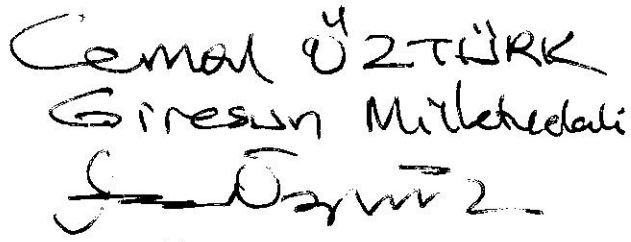 Cemal ÖZTÜRK
Giresun Milletvekili